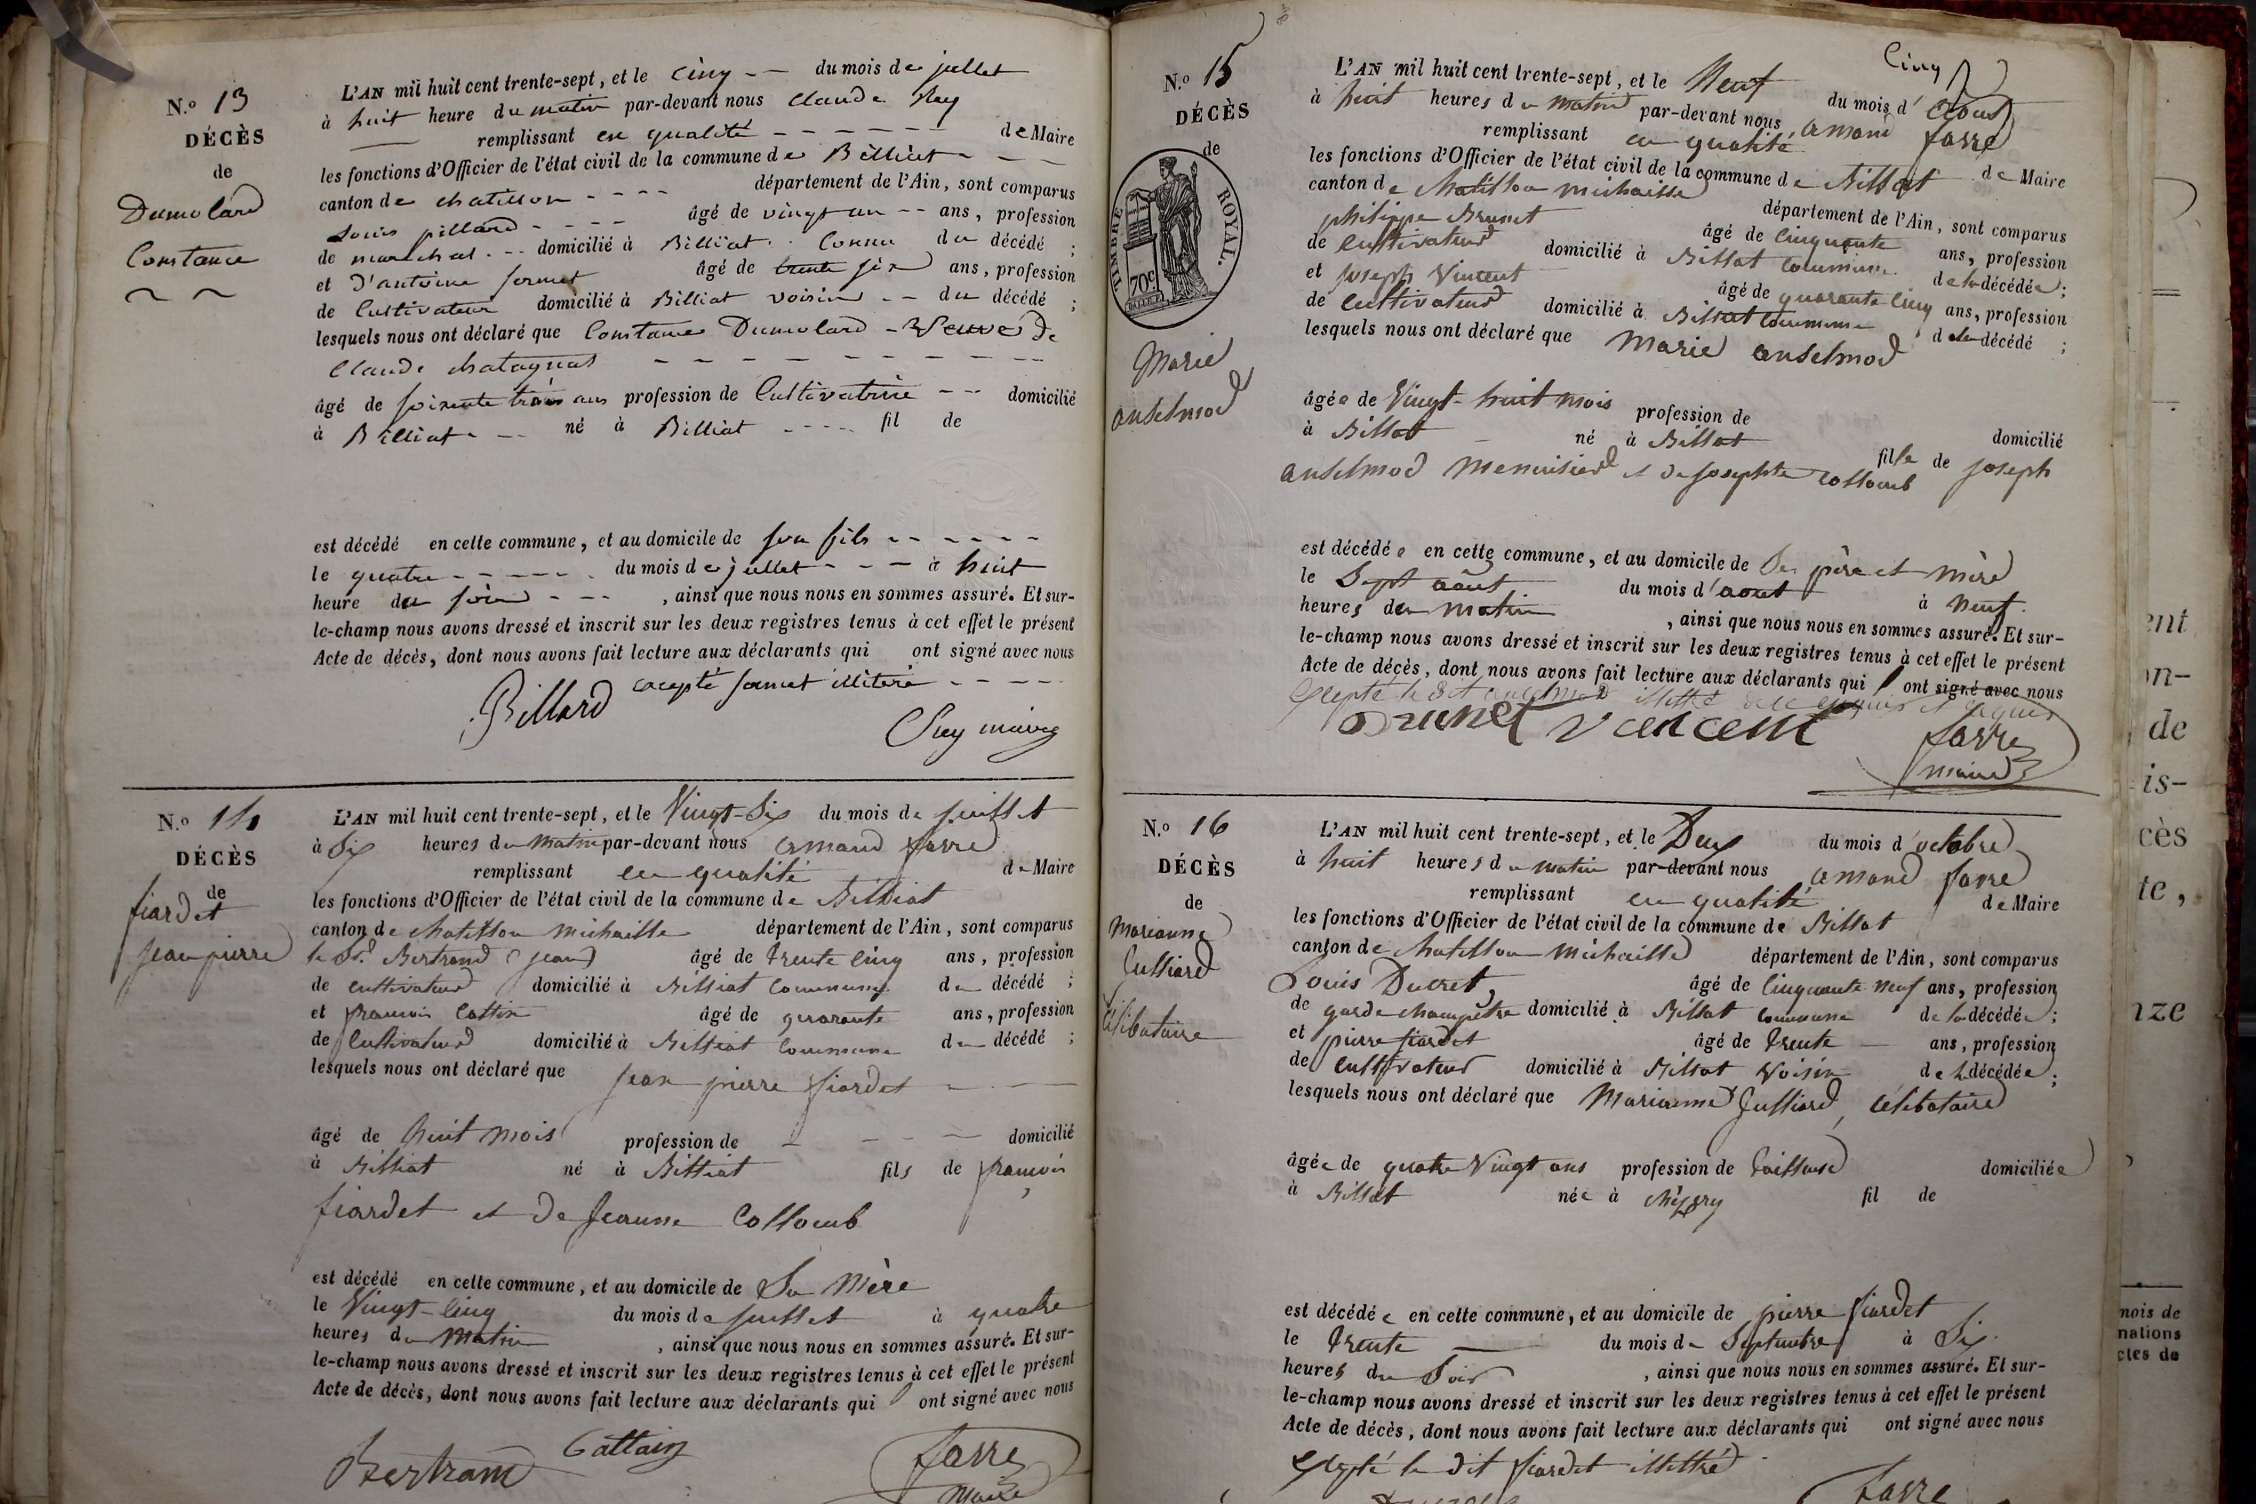 N.º 13
DÉCÈS
de
Dumolard
Constance
L'AN mil huit cent trente-sept, et le cinq du mois de juillet
à huit heure du matin par-devant nous Claude Rey
remplissant en qualité de Maire
les fonctions d'Officier de l'état civil de la commune de Billiat
canton de chatillon département de l'Ain, sont comparus
Louis pillard âgé de vingt un ans, profession
de marechal domicilié à Billiat connu du décédé ;
et d'antoine fornet âgé de trente six ans, profession
de Cultivateur domicilié à Billiat voisin du décédé ;
lesquels nous ont déclaré que Constance Dumolard Veuve de
Claude chatagnat
âgé de soixente trois ans profession de Cultivatrice domicilié
à Billiat né à Billiat fil de
est décédé en cette commune, et au domicile de son fils
le quatre du mois de juillet à huit
heure du soir , ainsi que nous nous en sommes assuré. Et sur-
le-champ nous avons dressé et inscrit sur les deux registres tenus à cet effet le présent
Acte de décès, dont nous avons fait lecture aux déclarants qui ont signé avec nous
excepté fornet illitéré
Billard
Rey maire
N.º 14
DÉCÈS
de
fiardet
jean pierre
L'AN mil huit cent trente-sept, et le Vingt-Six du mois de juillet
à Six heures du matin par-devant nous armand favre
remplissant en qualité de Maire
les fonctions d'Officier de l'état civil de la commune de Billiat
canton de chatillon michaille département de l'Ain, sont comparus
le Sr. Bertrand (jean) âgé de trente cinq ans, profession
de cultivateur domicilié à Billiat commune du décédé ;
et francois Cattin âgé de quarante ans, profession
de Cultivateur domicilié à Billiat commune du décédé ;
lesquels nous ont déclaré que jean pierre fiardet
âgé de huit mois profession de domicilié
à Billiat né à Billiat fils de françois
fiardet et de Jeanne Collomb
est décédé en cette commune, et au domicile de Sa Mère
le Vingt-cinq du mois de juillet à quatre
heures du Matin , ainsi que nous nous en sommes assuré. Et sur-
le-champ nous avons dressé et inscrit sur les deux registres tenus à cet effet le présent
Acte de décès, dont nous avons fait lecture aux déclarants qui ont signé avec nous
Bertrand Cattain favre
Maire
Cinq
N.º 15
DÉCÈS
de
TIMBRE ROYAL.
70c
Marie
anselmod
L'AN mil huit cent trente-sept, et le Neuf du mois d'août
à huit heures du matin par-devant nous armand favre
remplissant en qualité de Maire
les fonctions d'Officier de l'état civil de la commune de Billiat
canton de chatillon michaille département de l'Ain, sont comparus
philippe Brunet âgé de cinquante ans, profession
de cultivateur domicilié à Billiat commune de la décédée ;
et joseph Vincent âgé de quarante cinq ans, profession
de cultivateur domicilié à Billiat commune de la décédé ;
lesquels nous ont déclaré que Marie anselmod
âgée de Vingt-huit mois profession de domicilié
à Billiat né à Billiat fille de joseph
anselmod Menuisier et de josephte Collomb
est décédée en cette commune, et au domicile de Ses père et mère
le Sept août du mois d'aout à neuf
heures du matin , ainsi que nous nous en sommes assuré. Et sur-
le-champ nous avons dressé et inscrit sur les deux registres tenus à cet effet le présent
Acte de décès, dont nous avons fait lecture aux déclarants qui ont signé avec nous
Brunet Vincent favre
maire
N.º 16
DÉCÈS
de
Marianne
Julliard
Célibataire
L'AN mil huit cent trente-sept, et le Deux du mois d'octobre
à huit heures du matin par-devant nous armand favre
remplissant en qualité de Maire
les fonctions d'Officier de l'état civil de la commune de Billiat
canton de chatillon michaille département de l'Ain, sont comparus
Louis Ducret, âgé de Cinquante neuf ans, profession
de garde champêtre domicilié à Billiat commune de la décédée ;
et pierre fiardet âgé de trente ans, profession
de cultivateur domicilié à Billiat Voisin de la décédée ;
lesquels nous ont déclaré que Marianne Julliard, célibataire
âgée de quatre Vingt ans profession de tailleuse domiciliée
à Billiat née à chézery fil de
est décédée en cette commune, et au domicile de pierre fiardet
le trente du mois de Septembre à Six
heures du Soir , ainsi que nous nous en sommes assuré. Et sur-
le-champ nous avons dressé et inscrit sur les deux registres tenus à cet effet le présent
Acte de décès, dont nous avons fait lecture aux déclarants qui ont signé avec nous
excepté le dit fiardet illettré
favre
ent
on-
de
is-
cès
te,
nze
mois de
nations
ctes de